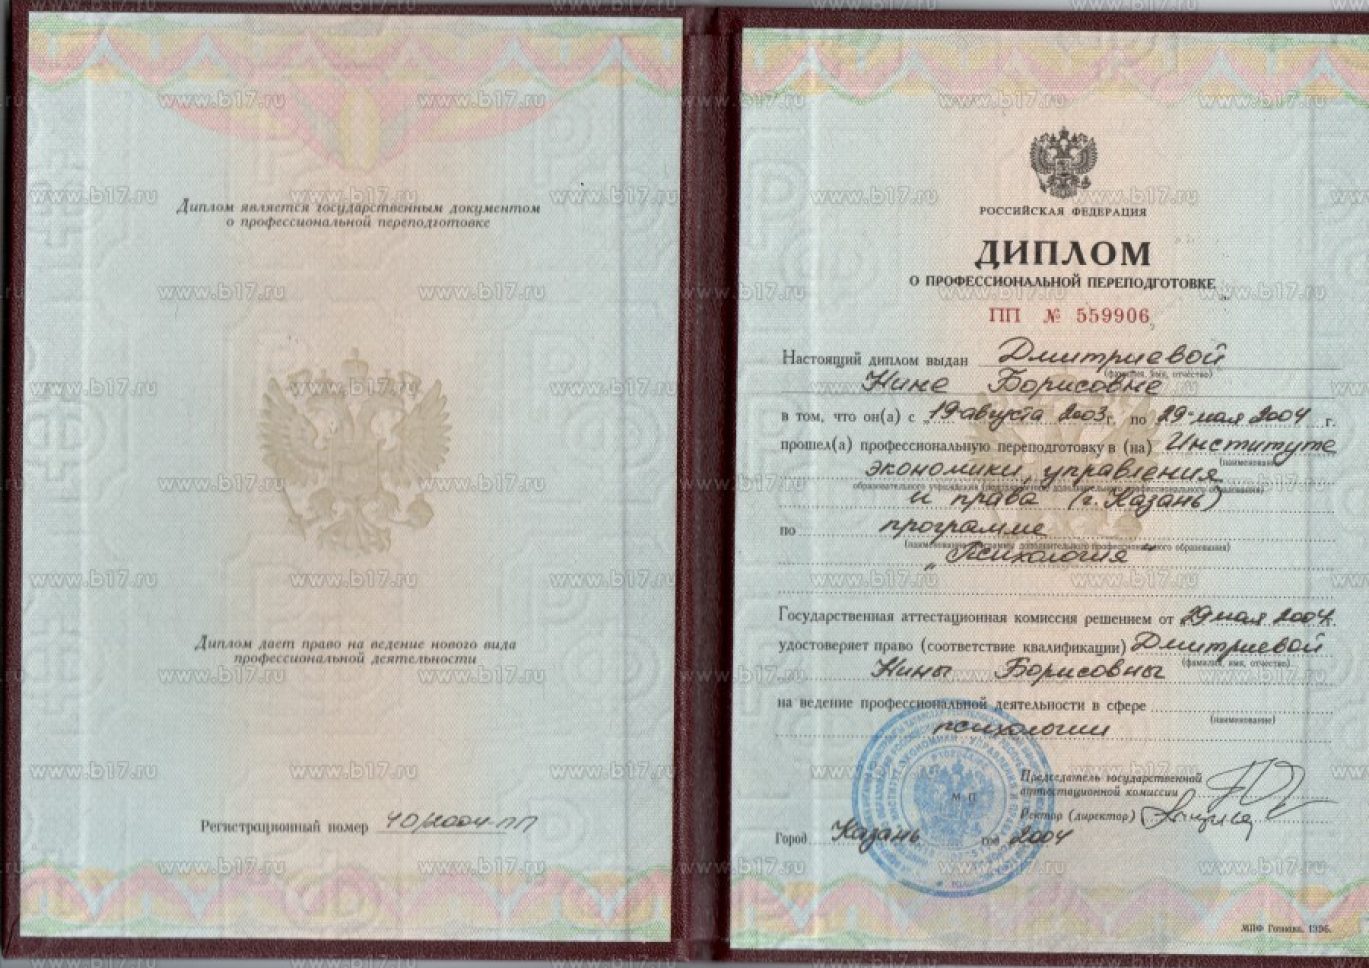 Диплом является государственным документом
о профессиональной переподготовке
Диплом дает право на ведение нового вида
профессиональной деятельности
Регистрационный номер 40/2004-ПП
РОССИЙСКАЯ ФЕДЕРАЦИЯ
ДИПЛОМ
О ПРОФЕССИОНАЛЬНОЙ ПЕРЕПОДГОТОВКЕ
ПП № 559906
Настоящий диплом выдан Дмитриевой
(фамилия, имя, отчество)
Нине Борисовне
в том, что он(а) с „19“ августа 2003г. по 29 мая 2004 г.
прошел(а) профессиональную переподготовку в (на) Институте
(наименование
экономики, управления
образовательного учреждения (подразделения) дополнительного профессионального образования)
и права (г. Казань)
по программе
(наименование программы дополнительного профессионального образования)
„Психология"
Государственная аттестационная комиссия решением от 29 мая 2004
удостоверяет право (соответствие квалификации) Дмитриевой
(фамилия, имя, отчество)
Нины Борисовны
на ведение профессиональной деятельности в сфере
(наименование)
психологии
Председатель государственной
аттестационной комиссии
М П
Ректор (директор)
Город Казань год 2004
МПФ Гознака. 1996.
www.b17.ru